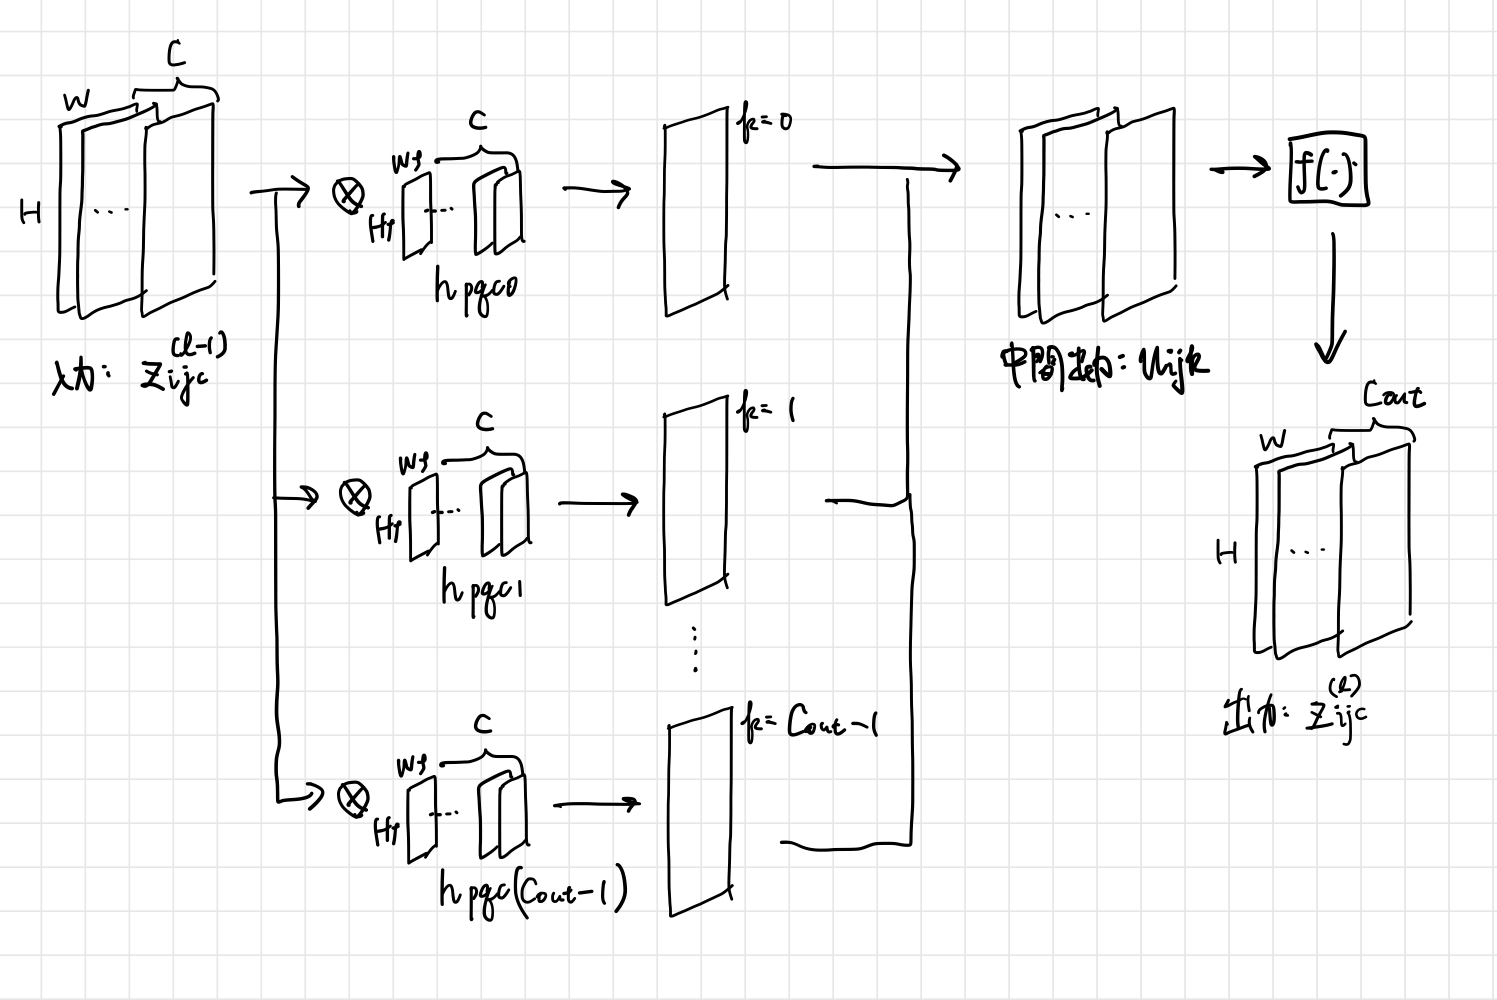 C
W
H
...
入力: z_{ijc}^{(l-1)}
C
Wf
Hf
...
h pqc0
k=0
C
Wf
Hf
...
h pqc1
k=1
C
Wf
Hf
...
h pqc(Cout-1)
k=Cout-1
...
中間出力: u_{ijk}
f(·)
Cout
W
H
...
出力: z_{ijc}^{(l)}